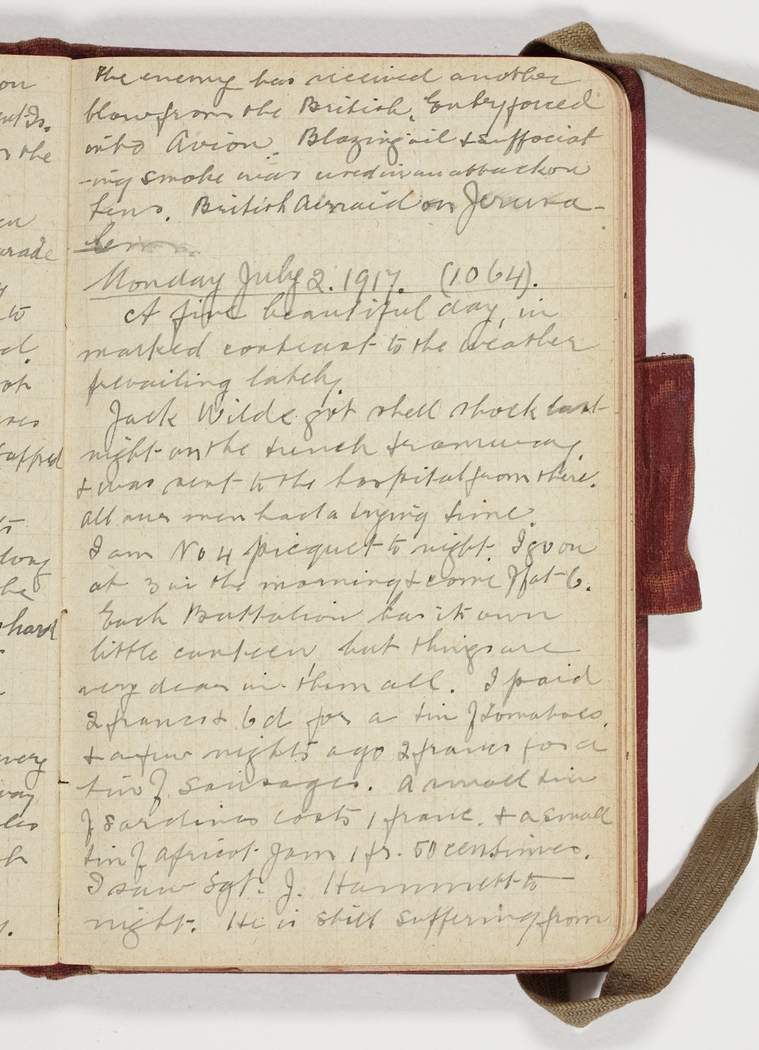 the enemy has received another
blow from the British. Entry forced
into Avion. Blazing oil & suffocat
-ing smoke was used in an attack on
Lens. British Air raid on Jerusa-
lem.
Monday July 2. 1917. (1064).
A fine beautiful day, in
marked contrast to the weather
prevailing lately.
Jack Wilde got shell shock last
night on the trench tramway
& was sent to the hospital from there.
All our men had a trying time.
I am No 4 picquet to night. I go on
at 3 in the morning & come off at 6.
Each Battalion has its own
little canteen, but things are
very dear in them all. I paid
2 francs & 6d for a tin of tomatoes,
& a few nights ago 2 francs for a
tin of sausages. A small tin
of sardines costs 1 franc. & a small
tin of apricot jam 1 fr. 50 centimes.
I saw Sgt. J. Hammett to
night. He is still suffering from
on
the
en
parade
to
ot
long
the
very
way